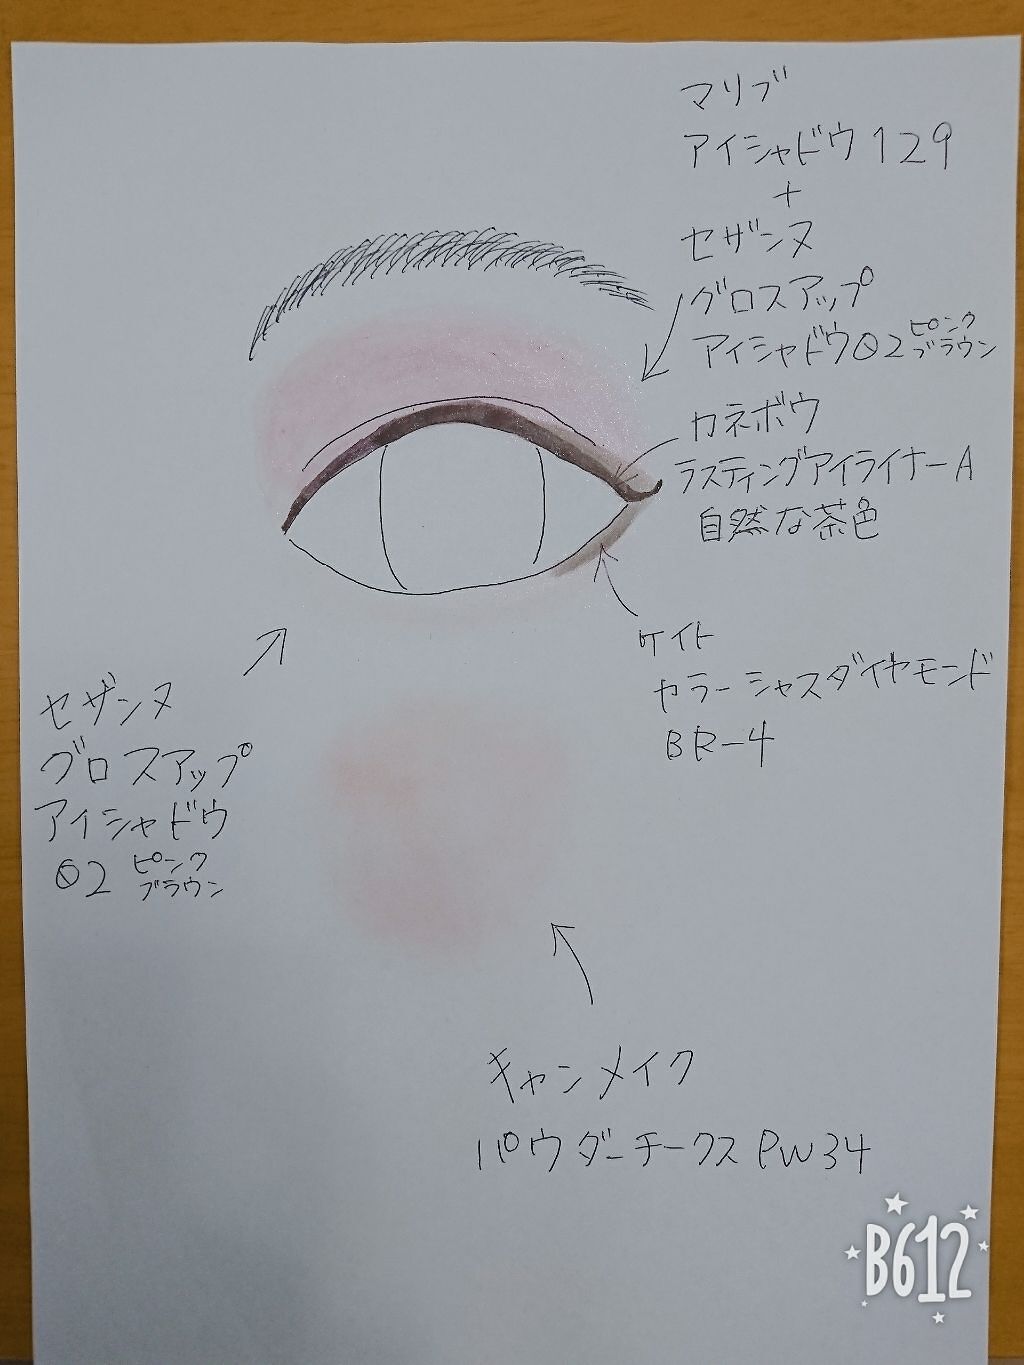 マリブ
アイシャドウ129
+
セザンヌ
グロスアップ
アイシャドウ02 ピンク
ブラウン
カネボウ
ラスティングアイライナーA
自然な茶色
ケイト
カラーシャスダイヤモンド
BR-4
セザンヌ
グロスアップ
アイシャドウ
02 ピンク
ブラウン
キャンメイク
パウダーチークス PW34
B612